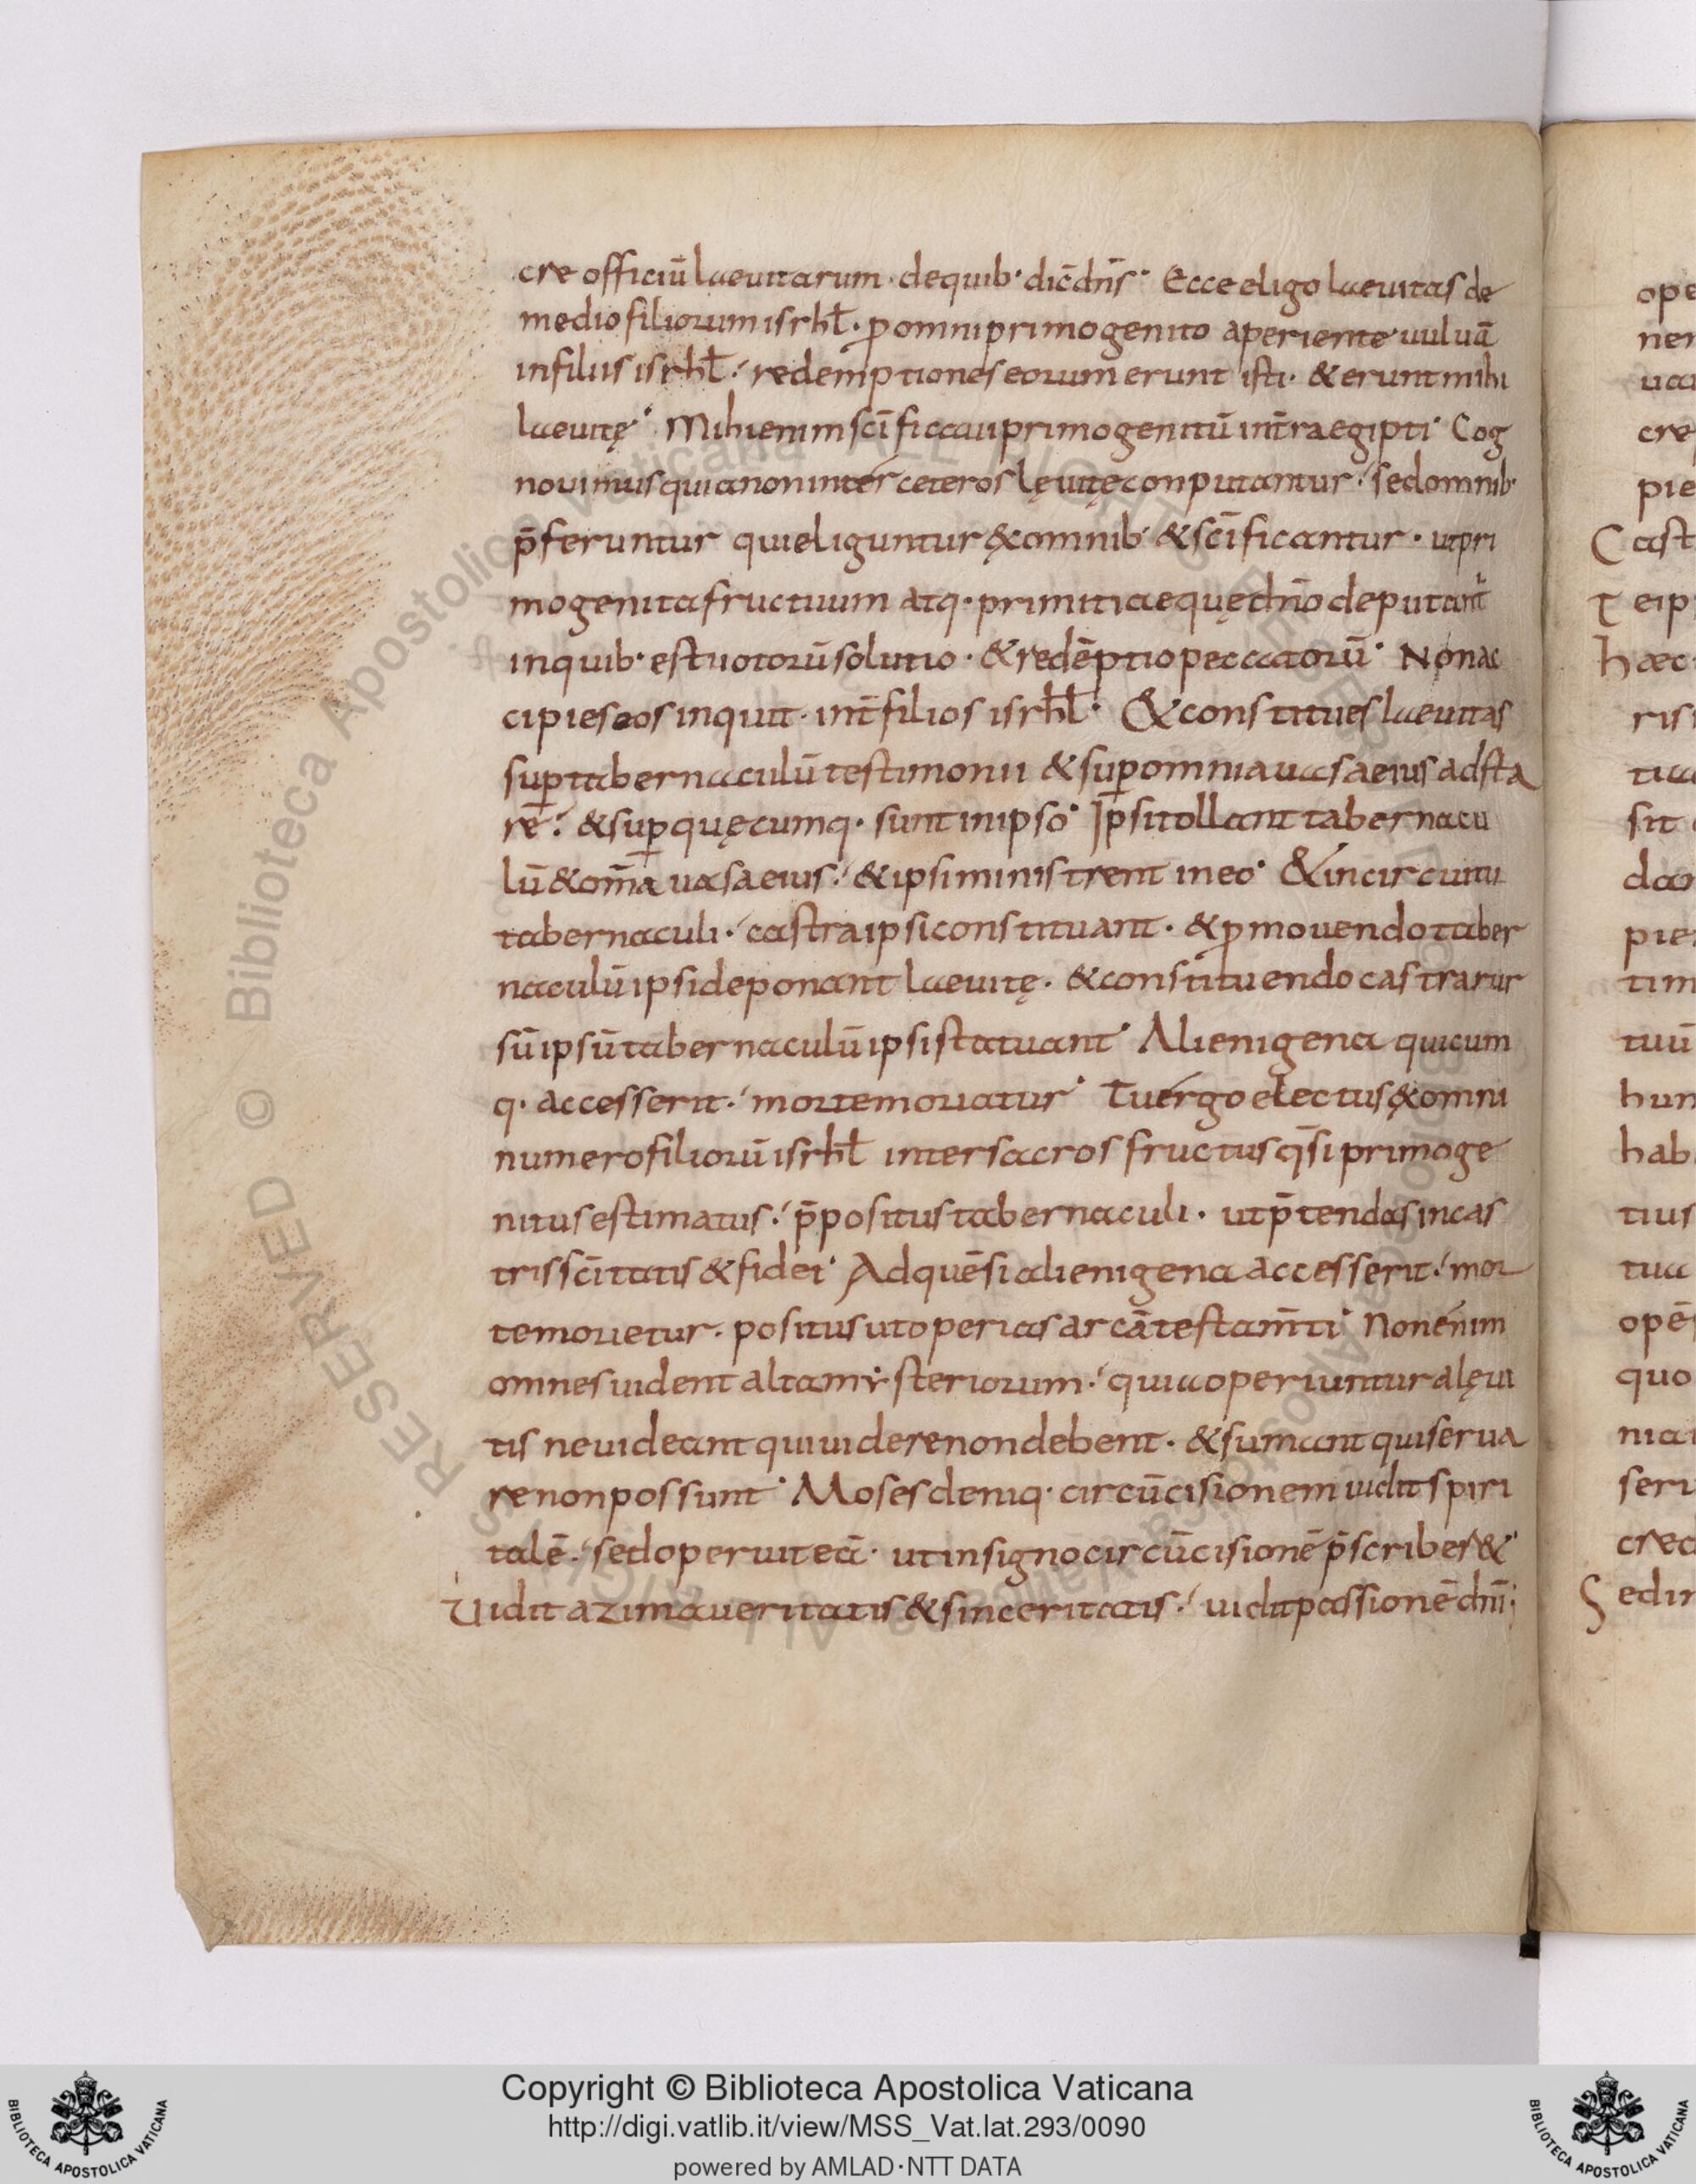 cre officiū laeuitarum · dequib· dic̄ dn̄s· Ecce eligo laeuitas de
medio filiorum isrhl̄· ꝓ omni primogenito aperiente uuluā
in filiis isrhl̄·́ redemptiones eorum erunt isti· & erunt mihi
laeuitę· Mihi enim sc̄ificaui primogenitū in t̄ra egipti· Cog
novimus quia non inter ceteros lęuitę conputantur·́ sed omnib·
p̄feruntur qui eliguntur ę& omnib· & sc̄ificantur· ut pri
mogenita fructuum atq· primitiae quę dn̄o deputant̄
in quib· est uotorū solutio· & redēptio peccatorū· Non ac
cipies eos inquit· int̄ filios isrhl̄· & constitues laeuitas
suꝑ tabernaculū testimonii & suꝑ omnia uasa eius adsta
re·́ & suꝑ quęcumq· sunt in ipso· Ipsi tollant tabernacu
lū & om̄a uasa eius·́ & ipsi ministrent in eo· & in circuitu
tabernaculi·́ castra ipsi constituant· & ꝓmouendo taber
naculū ipsi deponant laeuitę· & constituendo castra rur
sū ipsū tabernaculū ipsi statuant· Alienigena quicum
q· accesserit·́ morte moriatur· Tu ergo electus ę& omni
numero filiorū isrhl̄ inter sacros fructus q̄si primoge
nitus estimatus·́ p̄positus tabernaculi· ut p̄tendas in cas
tris sc̄itatis & fidei· Ad quē si alienigena accesserit·́ mor
te morietur· positus ut operias arcā testam̄ti· Non enim
omnes uident alta mẏsteriorum·́ quia operiuntur a lęui
tis ne uideant qui uidere non debent· & sumant qui serua
re non possunt· Moses deniq· circūcisionem uidit spiri
talē·́ sed operuit eā· ut in signo circūcisionē p̄scriber&
Uidit azima ueritatis & sinceritatis·́ uidit passionē dn̄i;
ope
ner
uai
cre
pie
Cast
T eip
haec
ris
tua
sit
dar
pie
tim
tuū
hun
hab
tius
tua
opē
quo
nia
seru
cred
Sedin
© Biblioteca Apostolica Vaticana ALL RIGHTS RESERVED
Copyright © Biblioteca Apostolica Vaticana
http://digi.vatlib.it/view/MSS_Vat.lat.293/0090
powered by AMLAD·NTT DATA
BIBLIOTECA APOSTOLICA VATICANA
BIBLIOTECA APOSTOLICA VATICANA